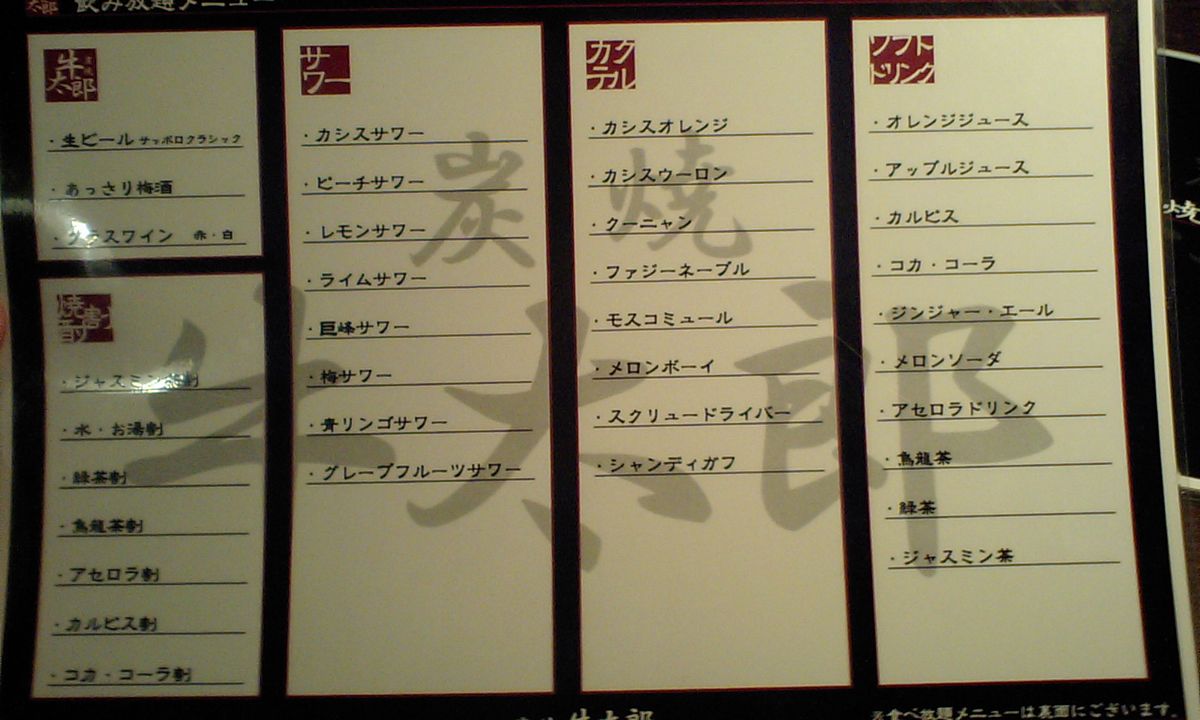 飲み放題メニュー
牛太郎
・生ビール サッポロクラシック
・あっさり梅酒
・グラスワイン 赤・白
焼酎割り
・ジャスミン茶割
・水・お湯割
・緑茶割
・烏龍茶割
・アセロラ割
・カルピス割
・コカ・コーラ割
サワー
・カシスサワー
・ピーチサワー
・レモンサワー
・ライムサワー
・巨峰サワー
・梅サワー
・青リンゴサワー
・グレープフルーツサワー
カクテル
・カシスオレンジ
・カシスウーロン
・クーニャン
・ファジーネーブル
・モスコミュール
・メロンボーイ
・スクリュードライバー
・シャンディガフ
ソフトドリンク
・オレンジジュース
・アップルジュース
・カルピス
・コカ・コーラ
・ジンジャー・エール
・メロンソーダ
・アセロラドリンク
・烏龍茶
・緑茶
・ジャスミン茶
炭焼
牛太郎
牛太郎
※食べ放題メニューは裏面にございます。